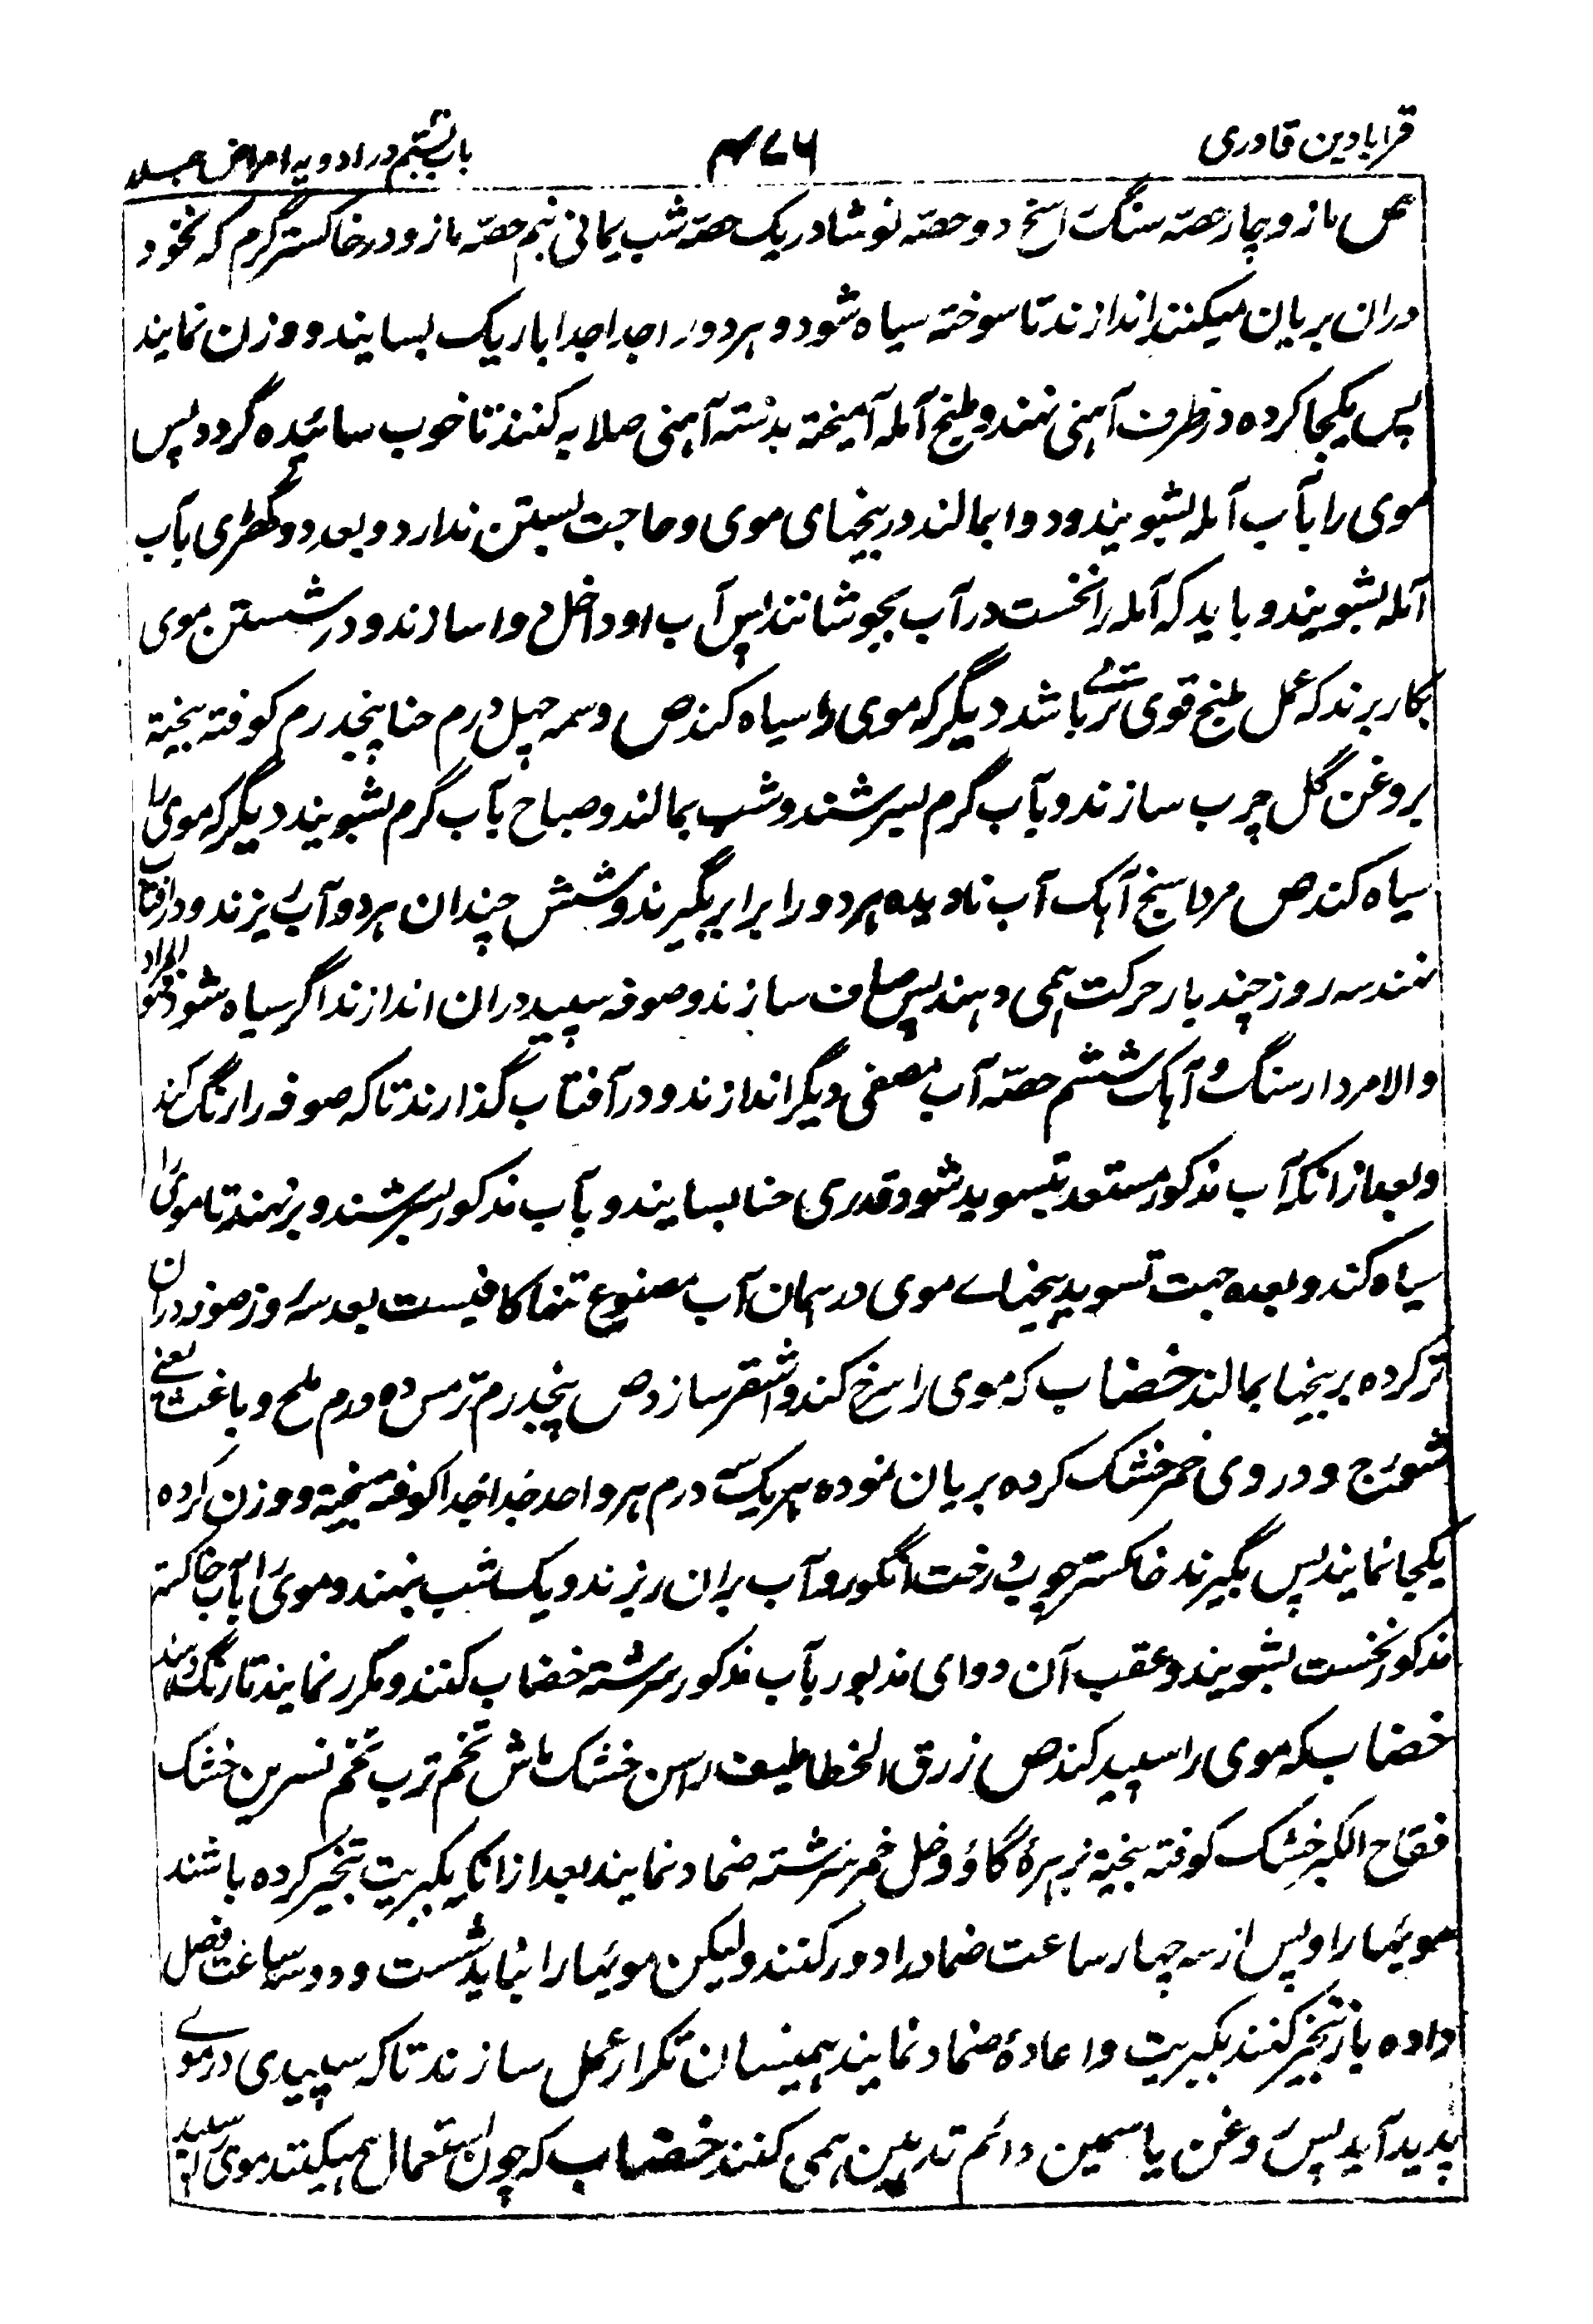 قرابادین قادری
۴۷۶
باب بستم در ادویه امراض جلد
ص مازو چار حصه سنگ راسخ دو حصه نوشادر یک حصه شب یمانی نیم حصه مازو در خاکستر گرم که نخود
دران بریان میکنند اندازند تا سوخته سیاه شود و هر دو را جدا جدا باریک بسایند و وزن نمایند
پس یکجا کرده در ظرف آهنی نهند و طبیخ آمله آمیخته بدسته آهنی صلایه کنند تا خوب سائیده گردد پس
موی را بآب آمله بشویند و دوا بمالند در بیخهای موی و حاجت بستن ندارد و بعد دو گهڑی بآب
آمله بشویند و باید که آمله را نخست در آب بجوشانند پس آب او داخل دوا سازند و در شستن موی
بکار برند که عمل طبیخ قوی تر باشد دیگر که موی را سیاه کند ص وسمه چهل درم حنا پنجدرم کوفته بیخته
بروغن گل چرب سازند و بآب گرم بسرشند و شب بمالند و صباح بآب گرم بشویند دیگر که موی را
سیاه کند ص مرداسنج آهک آب نادیده هر دو را برابر بگیرند و شش چندان هر دو آب ریزند و در آفتاب
نهند سه روز چند بار حرکت همی دهند پس صاف سازند و صوفه سپید دران اندازند اگر سیاه شود فهو المراد
والا مردارسنگ و آهک ششم حصه آب مصفی دیگر اندازند و در آفتاب گذارند تا که صوفه را رنگ کند
و بعد ازانکه آب مذکور مستعد تسوید شود قدری حنا بسایند و بآب مذکور بسرشند و برنهند تا موی را
سیاه کند و بعده جهت تسوید بیخهاے موی در همان آب مصنوع تنها کافیست بعد سه روز صوفه دران
تر کرده بر بیخها بمالند خضاب که موی را سرخ کند و اشقر سازد ص پنجدرم ترمس ده درم ملح دباغت یعنے
شورج و دردی خمر خشک کرده بریان نموده هر یک سه درم هر واحد جدا جدا کوفته بیخته و وزن کرده
یکجا نمایند پس بگیرند خاکستر چوب درخت انگور و آب بران ریزند و یک شب بنهند و موی را بآب خاکستر
مذکور نخست بشویند و عقب آن دوای مذبور بآب مذکور سرشته خضاب کنند و مکرر نمایند تا رنگ دهند
خضاب که موی را سپید کند ص زرق الخطاطیف راسن خشک ماش تخم ترب تخم نسرین خشک
فقاح الکبر خشک کوفته بیخته بزهرۀ گاؤ و خل خمر سرشته ضماد نمایند بعد ازانکه بکبریت تبخیر کرده باشند
مویها را و پس از سه چهار ساعت ضماد را دور کنند و لیکن مویها را نباید شست و دو سه ساعت فصل
داده باز تبخیر کنند بکبریت و اعادۀ ضماد نمایند همینسان تکرار عمل سازند تا که سپیدی در موے
پدید آید پس روغن یاسمین دائم تدهین همی کنند خضاب که چون استعمال همیکنند موی را سپید